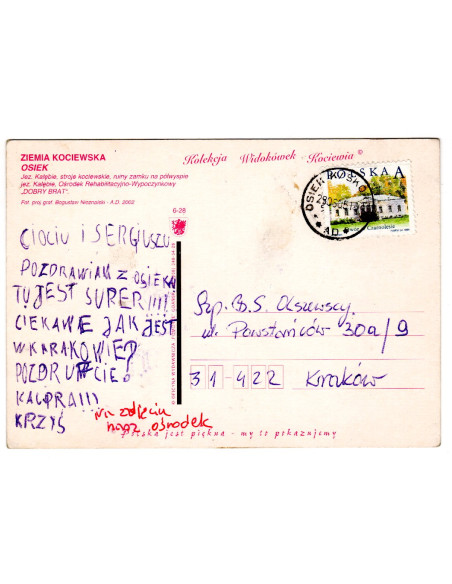 ZIEMIA KOCIEWSKA
OSIEK
Jez. Kałębie, stroje kociewskie, ruiny zamku na półwyspie
jez. Kałębie, Ośrodek Rehabilitacyjno-Wypoczynkowy
„DOBRY BRAT".
Fot. proj. graf. Bogusław Nieznalski - A.D. 2002
Kolekcja Widokówek - Kociewia ©
POLSKA A
6-28
CIOCIU I SERGIUSZU
POZDRAWIAM Z OSIEKA
TU JEST SUPER!!!!
CIEKAWE JAK JEST
W KRAKOWIE?
POZDRUFCIE!
KACPRA!!!
KRZYŚ
na zdjęciu
nasz ośrodek
Szp. B. S. Olszewscy
ul. Powstańców 30a/9
31-422 Kraków
Polska jest piękna - my to pokazujemy